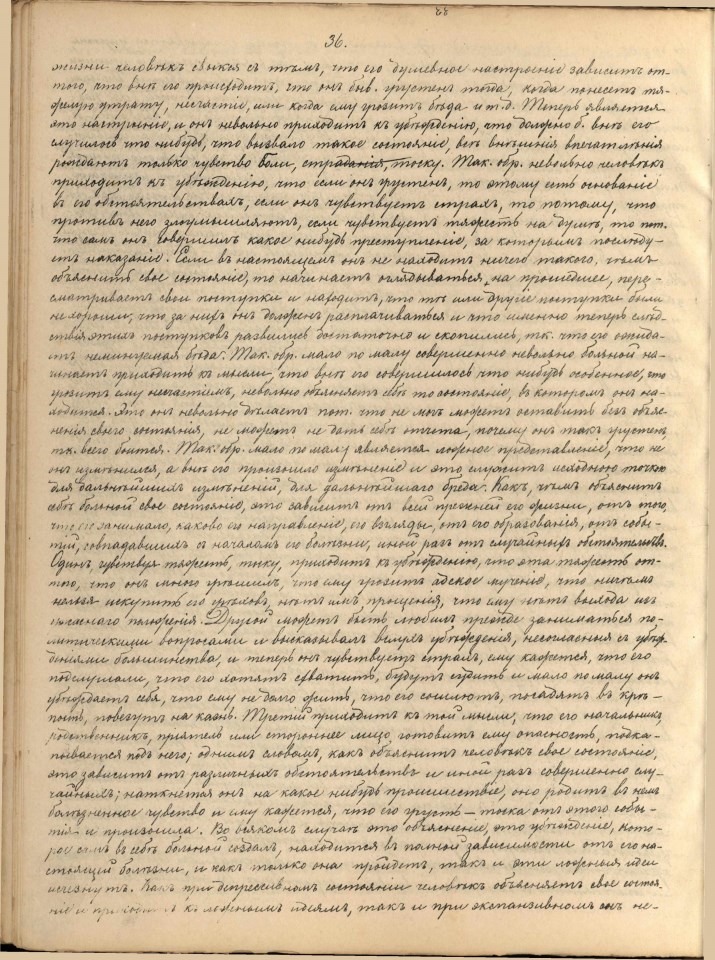 36.
жизни человѣкъ свыкся съ тѣмъ, что его душевное настроеніе зависитъ отъ
того, что внѣ его происходитъ, что онъ быв. грустенъ тогда, когда понесетъ тя-
желую утрату, несчастіе, или когда ему грозитъ бѣда и т.д. Теперь является
это настроеніе, и онъ невольно приходитъ къ убѣжденію, что должно б. внѣ его
случилось что нибудь, что вызвало такое состояніе, всѣ внѣшнія впечатлѣнія
рождаютъ только чувство боли, страданія, тоску. Так. обр. невольно человѣкъ
приходитъ къ убѣжденію, что если онъ грустенъ, то этому есть основаніе
въ его обстоятельствахъ, если онъ чувствуетъ страхъ, то потому, что
противъ него злоумышляютъ, если чувствуетъ тяжесть на душѣ, то пот.
что самъ онъ совершилъ какое нибудь преступленіе, за которымъ послѣду-
етъ наказаніе. Если въ настоящемъ онъ не находитъ ничего такого, чѣмъ
объяснить свое состояніе, то начинаетъ оглядываться на прошедшее, пере-
сматриваетъ свои поступки и находитъ, что тѣ или другіе поступки были
не хороши, что за нихъ онъ долженъ расплачиваться и что именно теперь слѣд-
ствія этихъ поступковъ развились достаточно и скопились, т.к. что его ожида-
етъ неминуемая бѣда. Так. обр. мало по малу совершенно невольно больной на-
чинаетъ приходить къ мысли, что внѣ его совершилось что нибудь особенное, что
грозитъ ему несчастіемъ, невольно объясняетъ себѣ то состояніе, въ которомъ онъ на-
ходится. Это онъ невольно дѣлаетъ пот. что не можетъ оставить безъ объяс-
ненія своего состоянія, не можетъ не дать себѣ отчета, почему онъ такъ грустенъ,
т.к. всего боится. Так. обр. мало по малу является ложное представленіе, что не
онъ измѣнился, а внѣ его произошло измѣненіе и это служитъ исходною точкою
для дальнѣйшихъ измѣненій, для дальнѣйшаго бреда. Какъ, чѣмъ объяснитъ
себѣ больной свое состояніе, это зависитъ отъ всей прежней его жизни, отъ того,
что его занимало, каково его направленіе, его взгляды, отъ его образованія, отъ собы-
тій, совпадавшихъ съ началомъ его болѣзни, иной разъ отъ случайныхъ обстоятельствъ.
Одинъ, чувствуя тяжесть, тоску, приходитъ къ убѣжденію, что эта тяжесть от-
того, что онъ много грѣшилъ, что ему грозитъ адское мученіе, что ничѣмъ
нельзя искупить его грѣховъ, нѣтъ имъ прощенія, что ему нѣтъ выхода изъ
положенія. Другой можетъ быть любилъ прежде заниматься по-
литическими вопросами и высказывалъ вслухъ убѣжденія, несогласныя съ убѣж-
деніями большинства, и теперь онъ чувствуетъ страхъ, ему кажется, что его
подслушали, что его хотятъ схватить, будутъ судить и мало по малу онъ
убѣждаетъ себя, что ему не долго жить, что его сошлютъ, посадятъ въ крѣ-
пость, повезутъ на казнь. Третій приходитъ къ той мысли, что его начальникъ,
родственникъ, пріятель или стороннее лицо, готовитъ ему опасность, подка-
пывается подъ него; однимъ словомъ, какъ объяснитъ человѣкъ свое состояніе,
это зависитъ отъ различныхъ обстоятельствъ и иной разъ совершенно слу-
чайныхъ; наткнется онъ на какое нибудь происшествіе, оно родитъ въ немъ
болѣзненное чувство и ему кажется, что его грусть – тоска отъ этого собы-
тія и произошла. Во всякомъ случаѣ это объясненіе, это убѣжденіе, кото-
рое самъ въ себѣ больной создалъ, находится въ полной зависимости отъ его на-
стоящей болѣзни, и какъ только она пройдетъ, такъ и эти ложныя идеи
исчезнутъ. Какъ при депрессивномъ состояніи человѣкъ объясняетъ свое состоя-
ніе и приходитъ къ ложнымъ идеямъ, такъ и при экспанзивномъ онъ не-